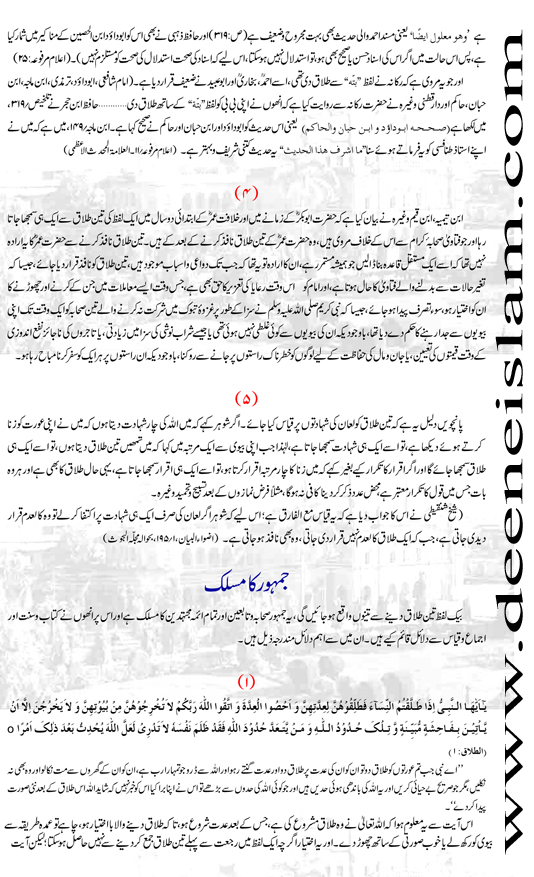 ہے ’وھو معلول ایضًا‘ یعنی مسند احمد والی حدیث بھی بہت مجروح و ضعیف ہے (ص:۳۱۹) اور حافظ ذہبی نے بھی اس کو ابوداؤد ابن الحصین کے مناکیر میں شمار کیا
ہے، پس اس حالت میں اگر اس کی اسناد حسن یا صحیح بھی ہو، تو استدلال نہیں ہو سکتا، اس لیے کہ اسناد کی صحت استدلال کی صحت کو مستلزم نہیں)۔ (اعلام مرفوعہ:۲۵)
اور جو یہ مروی ہے کہ رکانہ نے لفظ ’’بتہ‘‘ سے طلاق دی تھی، اسے احمد، بخاری اور ابوعبید نے ضعیف قرار دیا ہے۔ (امام شافعی، ابوداؤد، ترمذی، ابن ماجہ، ابن
حبان، حاکم اور دارقطنی وغیرہ نے حضرت رکانہ سے روایت کیا ہے کہ انھوں نے اپنی بی بی کو لفظ ’’بتہ‘‘ کے ساتھ طلاق دی............حافظ ابن حجر نے تلخیص،۳۱۹
میں لکھا ہے (صححہ ابوداؤد و ابن حبان والحاکم) یعنی اس حدیث کو ابوداؤد اور ابن حبان اور حاکم نے صحیح کہا ہے۔ ابن ماجہ،۱۴۹ میں ہے کہ میں نے
اپنے استاذ طنافسی کو یہ فرماتے ہوئے سنا ’’ما اشرف ھذا الحدیث‘‘ یہ حدیث کتنی شریف و بہتر ہے۔ (اعلام مرفوعہ/۱۱۔العلامۃ المحدث الاعظمی)
(۴)
ابن تیمیہ، ابن قیم وغیرہ نے بیان کیا ہے کہ حضرت ابوبکر کے زمانے میں اور خلافت عمر کے ابتدائی دو سال میں ایک لفظ کی تین طلاق سے ایک ہی سمجھا جاتا
رہا اور جو فتاویٰ صحابہ کرام سے اس کے خلاف مروی ہیں، وہ حضرت عمر کے تین طلاق نافذ کرنے کے بعد کے ہیں۔ تین طلاق نافذ کرنے سے حضرت عمر کا یہ ارادہ
نہیں تھا کہ اسے ایک مستقل قاعدہ بنا ڈالیں جو ہمیشہ مستمر رہے، ان کا ارادہ تو یہ تھا کہ جب تک دواعی و اسباب موجود ہیں، تین طلاق کو نافذ قرار دیا جائے، جیسا کہ
تغیر حالات سے بدلنے والے فتاویٰ کا حال ہوتا ہے، اور امام کو اس وقت رعایا کی تعزیر کا حق بھی ہے، جس وقت ایسے معاملات میں جن کے کرنے اور چھوڑنے کا
ان کو اختیار ہو، سوء تصرف پیدا ہو جائے، جیسا کہ نبی کریم صلی اللہ علیہ وسلم نے سزا کے طور پر غزوۂ تبوک میں شرکت نہ کرنے والے تین صحابہ کو ایک وقت تک اپنی
بیویوں سے جدا رہنے کا حکم دے دیا تھا، باوجودیکہ ان کی بیویوں سے کوئی غلطی نہیں ہوئی تھی یا جیسے شراب نوشی کی سزا میں زیادتی، یا تاجروں کی ناجائز نفع اندوزی
کے وقت قیمتوں کی تعیین، یا جان و مال کی حفاظت کے لیے لوگوں کو خطرناک راستوں پر جانے سے روکنا، باوجودیکہ ان راستوں پر ہر ایک کو سفر کرنا مباح رہا ہو۔
(۵)
پانچویں دلیل یہ ہے کہ تین طلاق کو لعان کی شہادتوں پر قیاس کیا جائے۔ اگر شوہر کہے کہ میں اللہ کی چار شہادت دیتا ہوں کہ میں نے اپنی عورت کو زنا
کرتے ہوئے دیکھا ہے، تو اسے ایک ہی شہادت سمجھا جاتا ہے، لہٰذا جب اپنی بیوی سے ایک مرتبہ میں کہا کہ میں تمھیں تین طلاق دیتا ہوں، تو اسے ایک ہی
طلاق سمجھا جائے گا اور اگر اقرار کا تکرار کیے بغیر کہے کہ میں زنا کا چار مرتبہ اقرار کرتا ہوں، تو اسے ایک ہی اقرار سمجھا جاتا ہے، یہی حال طلاق کا بھی ہے اور ہر وہ
بات جس میں قول کا تکرار معتبر ہے، محض عدد ذکر کر دینا کافی نہ ہوگا، مثلاً فرض نمازوں کے بعد تسبیح و تحمید وغیرہ۔
(شیخ شنقیطی نے اس کا جواب دیا ہے کہ یہ قیاس مع الفارق ہے، اس لیے کہ شوہر اگر لعان کی صرف ایک ہی شہادت پر اکتفا کر لے تو وہ کالعدم قرار
دیدی جاتی ہے، جب کہ ایک طلاق کالعدم نہیں قرار دی جاتی، وہ بھی نافذ ہو جاتی ہے۔ (اضواء البیان، ۱۹۵/۱، بحوالہ مجلۃ البحوث)
جمہور کا مسلک
بیک لفظ تین طلاق دینے سے تینوں واقع ہو جائیں گی، یہ جمہور صحابہ و تابعین اور تمام ائمہ مجتہدین کا مسلک ہے اور اس پر انھوں نے کتاب و سنت اور
اجماع و قیاس سے دلائل قائم کیے ہیں۔ ان میں سے اہم دلائل مندرجہ ذیل ہیں۔
(۱)
یٰٓاَیُّھَا النَّبِیُّ اِذَا طَلَّقْتُمُ النِّسَآءَ فَطَلِّقُوْھُنَّ لِعِدَّتِھِنَّ وَ اَحْصُوا الْعِدَّۃَ وَ اتَّقُوا اللّٰہَ رَبَّکُمْ لَا تُخْرِجُوْھُنَّ مِنْ بُیُوْتِھِنَّ وَ لَا یَخْرُجْنَ اِلَّا اَنْ
یَّاْتِیْنَ بِفَاحِشَۃٍ مُّبَیِّنَۃٍ وَ تِلْکَ حُدُوْدُ اللّٰہِ وَ مَنْ یَّتَعَدَّ حُدُوْدَ اللّٰہِ فَقَدْ ظَلَمَ نَفْسَہٗ لَا تَدْرِیْ لَعَلَّ اللّٰہَ یُحْدِثُ بَعْدَ ذٰلِکَ اَمْرًا o
(الطلاق:۱)
’’اے نبی جب تم عورتوں کو طلاق دو تو ان کو ان کی عدت پر طلاق دو اور عدت گنتے رہو اور اللہ سے ڈرو جو تمہارا رب ہے، ان کو ان کے گھروں سے مت نکالو اور وہ بھی نہ
نکلیں مگر جو صریح بے حیائی کریں اور یہ اللہ کی باندھی ہوئی حدیں ہیں اور جو کوئی اللہ کی حدوں سے بڑھے تو اس نے اپنا برا کیا اس کو خبر نہیں کہ شاید اللہ اس طلاق کے بعد نئی صورت
پیدا کر دے‘‘۔
اس آیت سے یہ معلوم ہوا کہ اللہ تعالیٰ نے وہ طلاق مشروع کی ہے، جس کے بعد عدت شروع ہو، تاکہ طلاق دینے والا بااختیار ہو، چاہے تو عمدہ طریقہ سے
بیوی کو رکھ لے یا خوب صورتی کے ساتھ چھوڑ دے۔ اور یہ اختیار اگرچہ ایک لفظ میں رجعت سے پہلے تین طلاق جمع کر دینے سے نہیں حاصل ہو سکتا، لیکن آیت
www.deeneislam.com